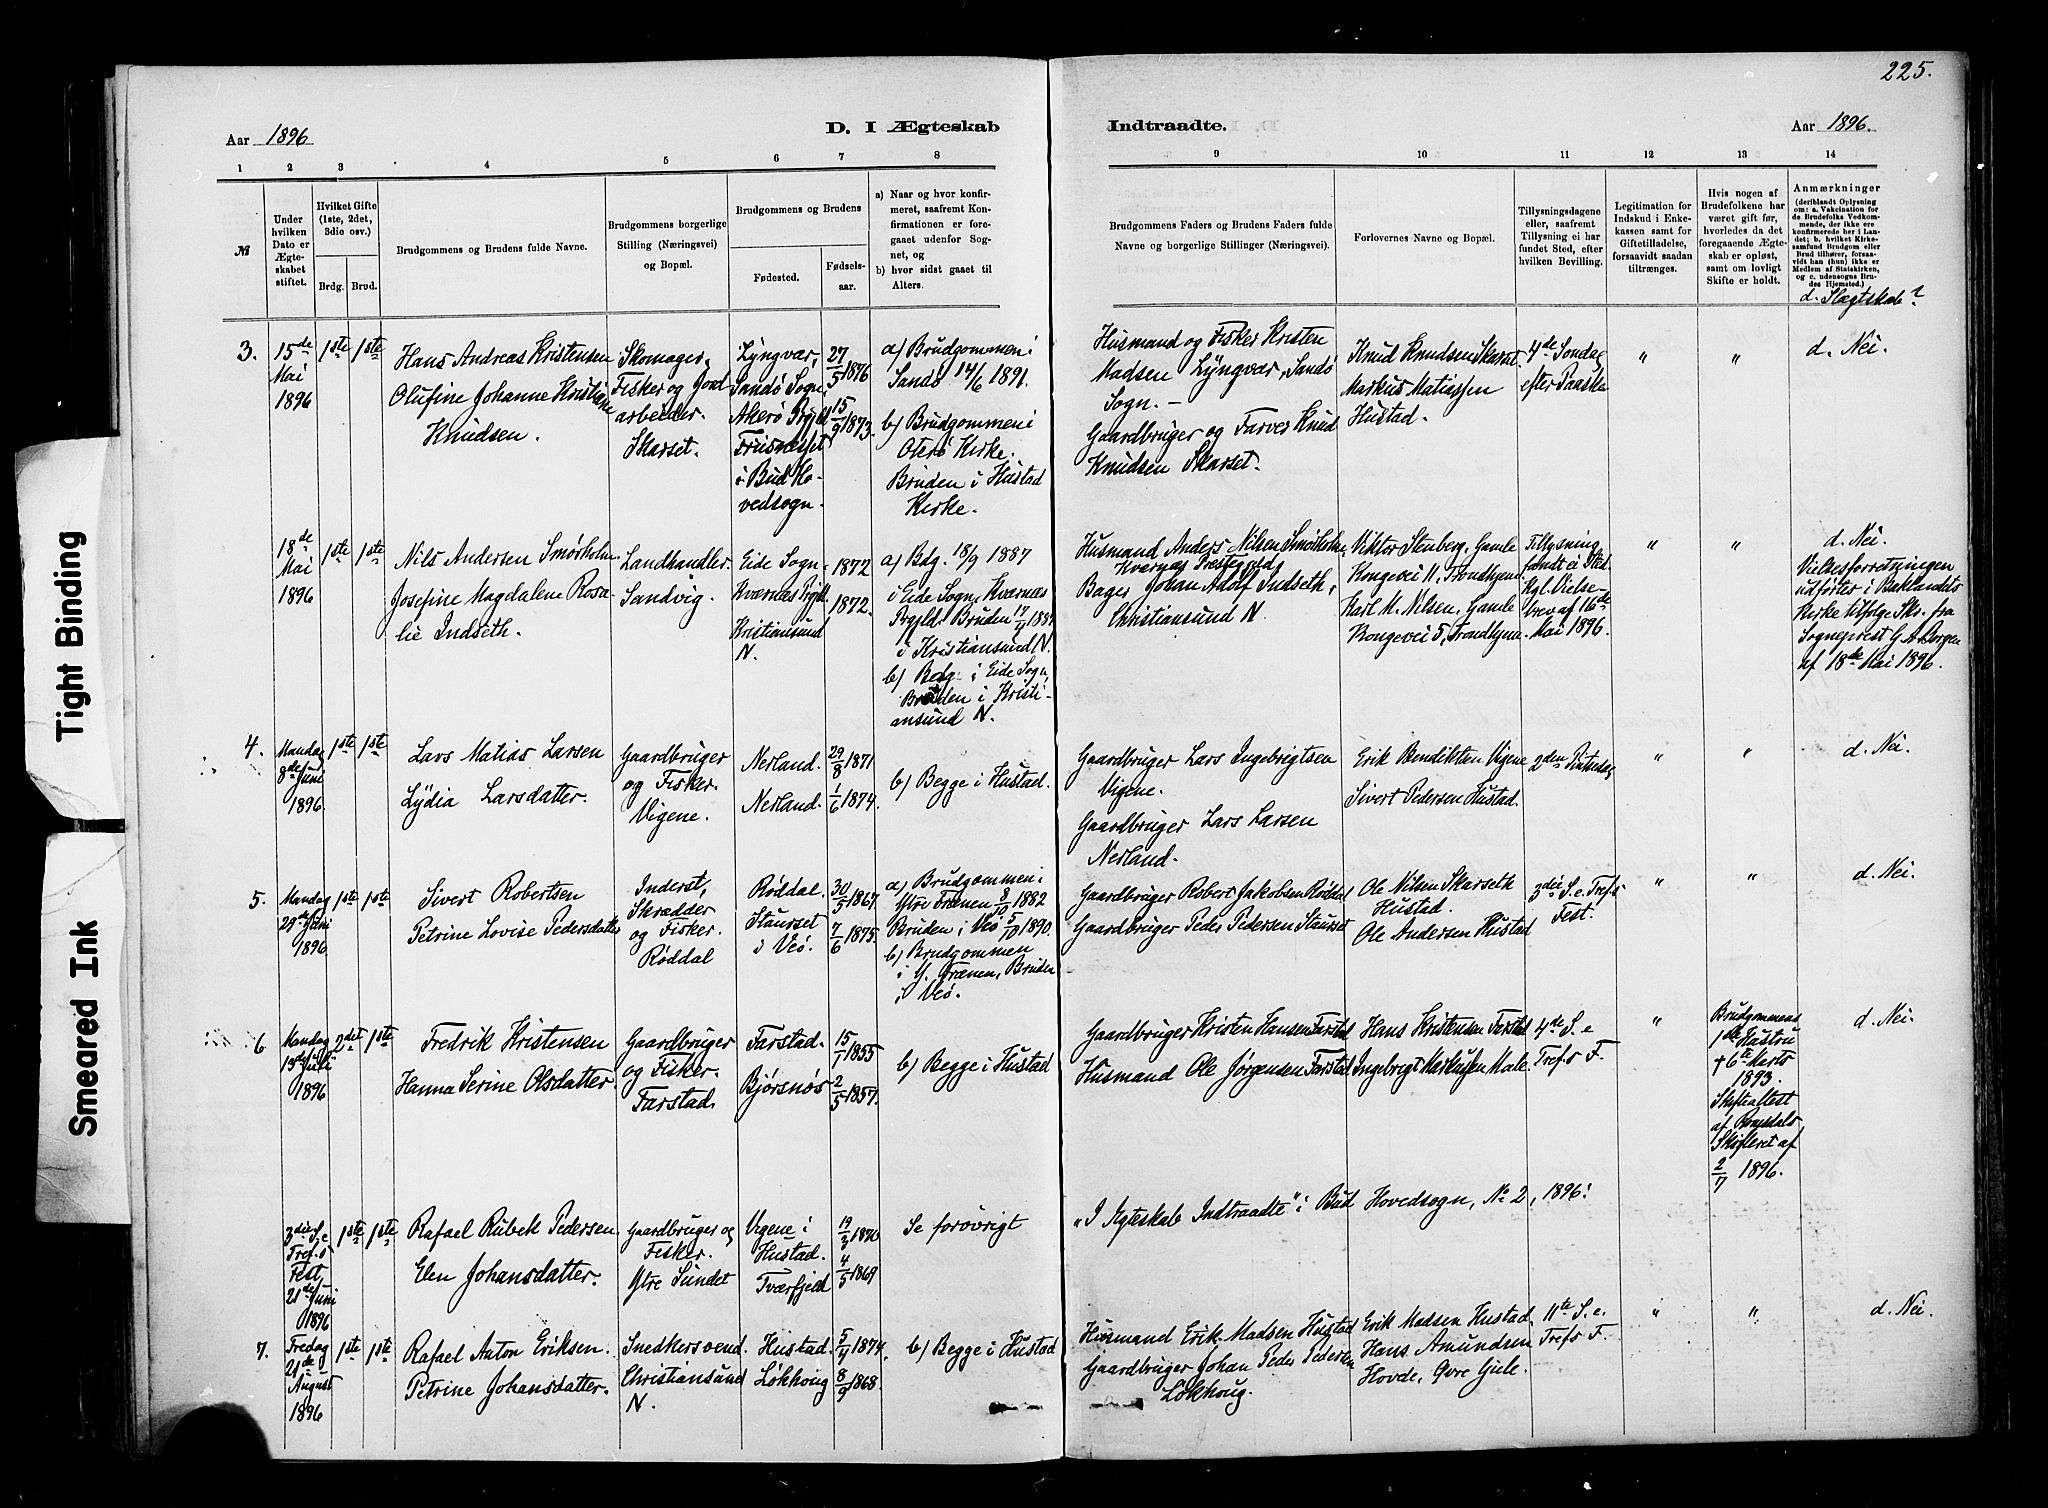 225.
Aar 1896
D. I Ægteskab
Indtraadte.
Aar 1896.
1 2 3 4 5 6 7 8 9 10 11 12 13 14
№
Under
hvilken
Dato er
Ægte-
skabet
stiftet.
Hvilket Gifte
(1ste, 2det,
3die osv.)
Brdg. Brud.
Brudgommens og Brudens fulde Navne.
Brudgommens borgerlige
Stilling (Næringsvei)
og Bopæl.
Brudgommens og Brudens
Fødested.
Fødsels-
aar.
a) Naar og hvor konfir-
meret, saafremt Kon-
firmationen er fore-
gaaet udenfor Sog-
net, og
b) hvor sidst gaaet til
Alters.
Brudgommens Faders og Brudens Faders fulde
Navne og borgerlige Stillinger (Næringsvei).
Forlovernes Navne og Bopæl.
Tillysningsdagene
eller, saafremt
Tillysning ei har
fundet Sted, efter
hvilken Bevilling.
Legitimation for
Indskud i Enke-
kassen samt for
Giftetilladelse,
forsaavidt saadan
tiltrænges.
Hvis nogen af
Brudefolkene har
været gift før,
hvorledes da det
foregaaende Ægte-
skab er opløst,
samt om lovligt
Skifte er holdt.
Anmærkninger
(deriblandt Oplysning
om: a. Vakcination for
de Brudefolks Vedkom-
mende, der ikke ere
konfirmerede her i Lan-
det; b. hvilket Kirke-
samfund Brudgom eller
Brud tilhører, forsaa-
vidt han (hun) ikke er
Medlem af Statskirken,
og c. udensogns Bru-
des Hjemsted.)
d. Slægtskab?
3.
15de
Mai
1896
1ste 1ste
Hans Andreas Kristensen
Olufine Johanne Kristiane
Knudsen.
Skomager,
Fisker og Jord
arbeider.
Skarset.
Lyngvær,
Sandö Sogn
Akerö Prgjld
Friisnæsset
i Bud Ho-
vedsogn.
27/5 1876
15/9 1873.
a) Brudgommen i
Sandö 14/6 1891.
b) Brudgommen i
Oterö Kirke.
Bruden i Hustad
Kirke.
Husmand og Fisker Kristen
Madsen Lyngvær, Sandö
Sogn. -
Gaardbruger og Farver Knud
Knudsen Skarset.
Knud Knudsen Skarset.
Markus Matiassen
Hustad.
4de Søndag
efter Paaske
" "
d. Nei.
18de
Mai
1896
1ste 1ste
Nils Andersen Smørholm.
Josefine Magdalene Rosa-
lie Indseth.
Landhandler.
Sandvig.
Eide Sogn
Kværnæs Prgjld
Kristiansund
N.
1872
1872.
a) Bdg. 18/9 1887
i Eide Sogn, Kværnæs
Prgjld. Bruden 17/4 1887
i Kristiansund N.
b) Bdg. i Eide Sogn,
Bruden i Kristi-
ansund N.
Husmand Anders Nilsen Smørholm,
Kværnæs Præstegjeld,
Bager Johan Adolf Indseth,
Christiansund N.
Viktor Stenberg, Gamle
Kongevei 11, Trondhjem
Karl M. Nilsen, Gamle
Kongevei 5, Trondhjem
Tillysning
fandt ei Sted.
Kgl. Vielse-
brev af 16de
Mai 1896.
" "
d. Nei.
Vielsesforretningen
udførtes i Baklandets
Kirke tilfølge Skr. fra
Sogneprest G. A. Borgen
af 18de Mai 1896.
4.
Mandag
8de Juni
1896
1ste 1ste
Lars Matias Larsen
Lydia Larsdatter.
Gaardbruger
og Fisker.
Vigene.
Nerland.
Nerland.
29/8 1871
1/6 1874.
b) Begge i Hustad.
Gaardbruger Lars Ingebrigtsen
Vigene.
Gaardbruger Lars Larsen
Nerland.
Erik Bendiktsen Vigene
Sivert Pedersen Hustad.
2den Pintsedag
" "
d. Nei.
5.
Mandag
29de Juni
1896
1ste 1ste
Sivert Robertsen
Petrine Lovise Pedersdatter
Inderst,
Skrædder
og Fisker.
Røddal
Røddal.
Staurset
i Veö.
30/5 1867.
7/6 1875.
a) Brudgommen i
Ytre Frænen 8/10 1882
Bruden i Veö 5/10 1890.
b) Brudgommen
i Y. Frænen, Bruden
i Veö.
Gaardbruger Robert Jakobsen Røddal
Gaardbruger Peder Pedersen Staurset
Ole Nilsen Skarseth
Hustad.
Ole Andersen Hustad
3die S. e. Tref.s
Fest.
" "
d. Nei.
6
Mandag
13de Juli
1896
2det 1ste
Fredrik Kristensen
Hanna Serine Olsdatter
Gaardbruger
og Fisker.
Farstad.
Farstad.
Bjørsnös
15/1 1855
2/5 1857.
b) Begge i Hustad
Gaardbruger Kristen Hansen Farstad
Husmand Ole Jørgensen Farstad
Hans Kristensen Farstad
Ingebrigt Markussen Male.
4de S. e
Tref.s F.
"
Brudgommens
1ste Hustru
† 6te Marts
1893.
Skifteattest
af Romsdals
Skifteret af
2/7 1896.
d. Nei.
3die S. e
Tref.s
Fest,
21de Juni
1896
1ste 1ste
Rafael Rubek Pedersen
Elen Johansdatter.
Gaardbruger og
Fisker.
Ytre Sundet
Vigene i
Hustad.
Tværfjeld
19/3 1870
4/5 1869
Se forøvrigt „I Ægteskab Indtraadte" i Bud Hovedsogn, No 2, 1896!
7.
Fredag
21de
August
1896
1ste 1ste
Rafael Anton Eriksen.
Petrine Johansdatter.
Snedkersvend
Christiansund
N.
Hustad.
Løkhoug
5/4 1874.
8/9 1868.
b) Begge i Hustad
Husmand Erik Madsen Hustad
Gaardbruger Johan Peder Pedersen
Løkhoug.
Erik Madsen Hustad
Hans Amundsen
Hovde, Øvre Gjele.
11te S. e.
Tref.s F.
" "
d. Nei.
Tight Binding
Smeared Ink